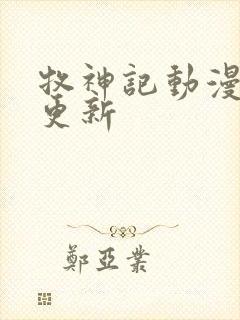 牧神記動漫
更新
鄭亞業